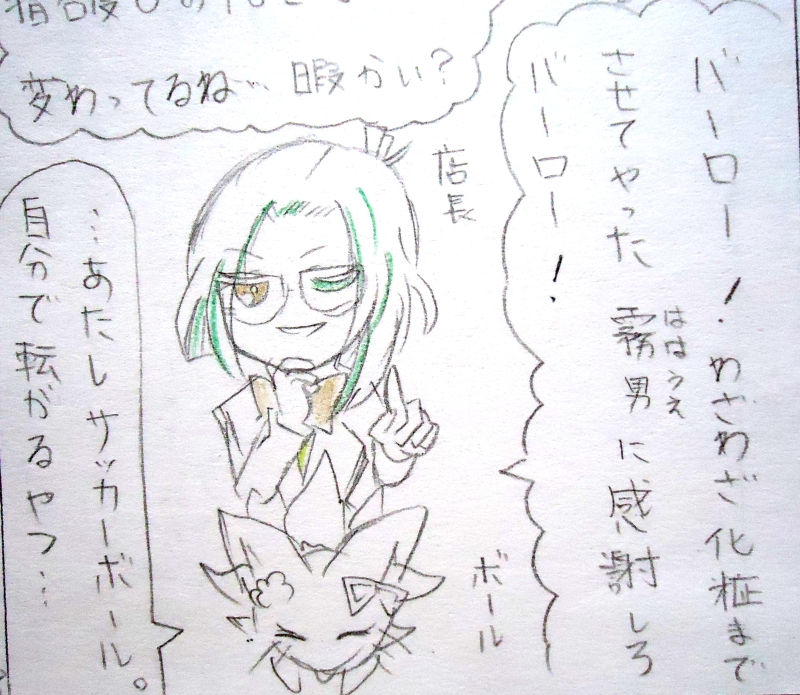 バーロー!わざわざ化粧まで
させてやった霧男に感謝しろ
ははうえ
バーロー!
変わってるね…暇かい?
店長
ボール
…あたしサッカーボール。
自分で転がるやつ…